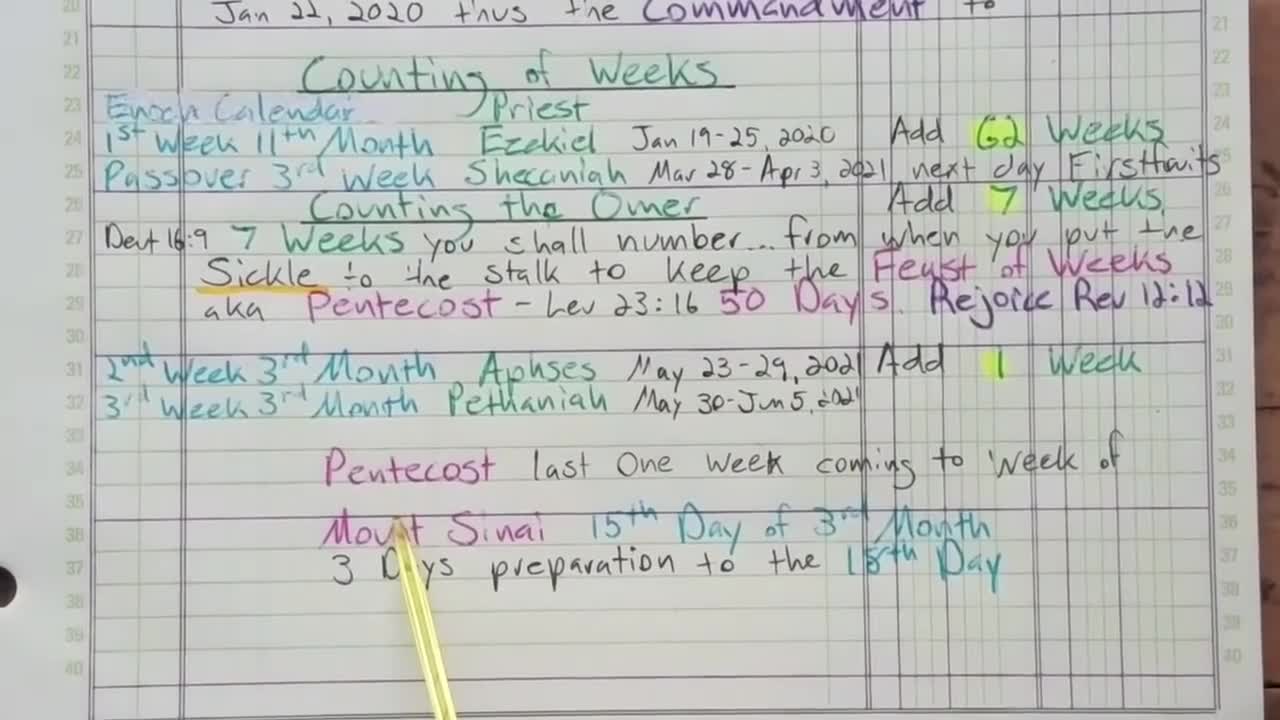 Jan 22, 2020 thus the Commandment to
Counting of Weeks
Enoch Calendar Priest
1st Week 11th Month Ezekiel Jan 19-25, 2020 Add 62 Weeks
Passover 3rd Week Shecaniah Mar 28-Apr 3, 2021 next day Firstfruits
Counting the Omer Add 7 Weeks
Deut 16:9 7 Weeks you shall number... from when you put the
Sickle to the stalk to keep the Feast of Weeks
aka Pentecost - Lev 23:16 50 Days. Rejoice Rev 12:12
2nd Week 3rd Month Aphses May 23-29, 2021 Add 1 Week
3rd Week 3rd Month Pethaniah May 30-Jun 5, 2021
Pentecost last One week coming to week of
Mount Sinai 15th Day of 3rd Month
3 Days preparation to the 15th Day
20 21
21 22
22 23
23
24 24
25 25
26 26
27 27
28 28
29 29
30 30
31 31
32 32
33 33
34 34
35 35
36 36
37 37
38 38
39 39
40 40